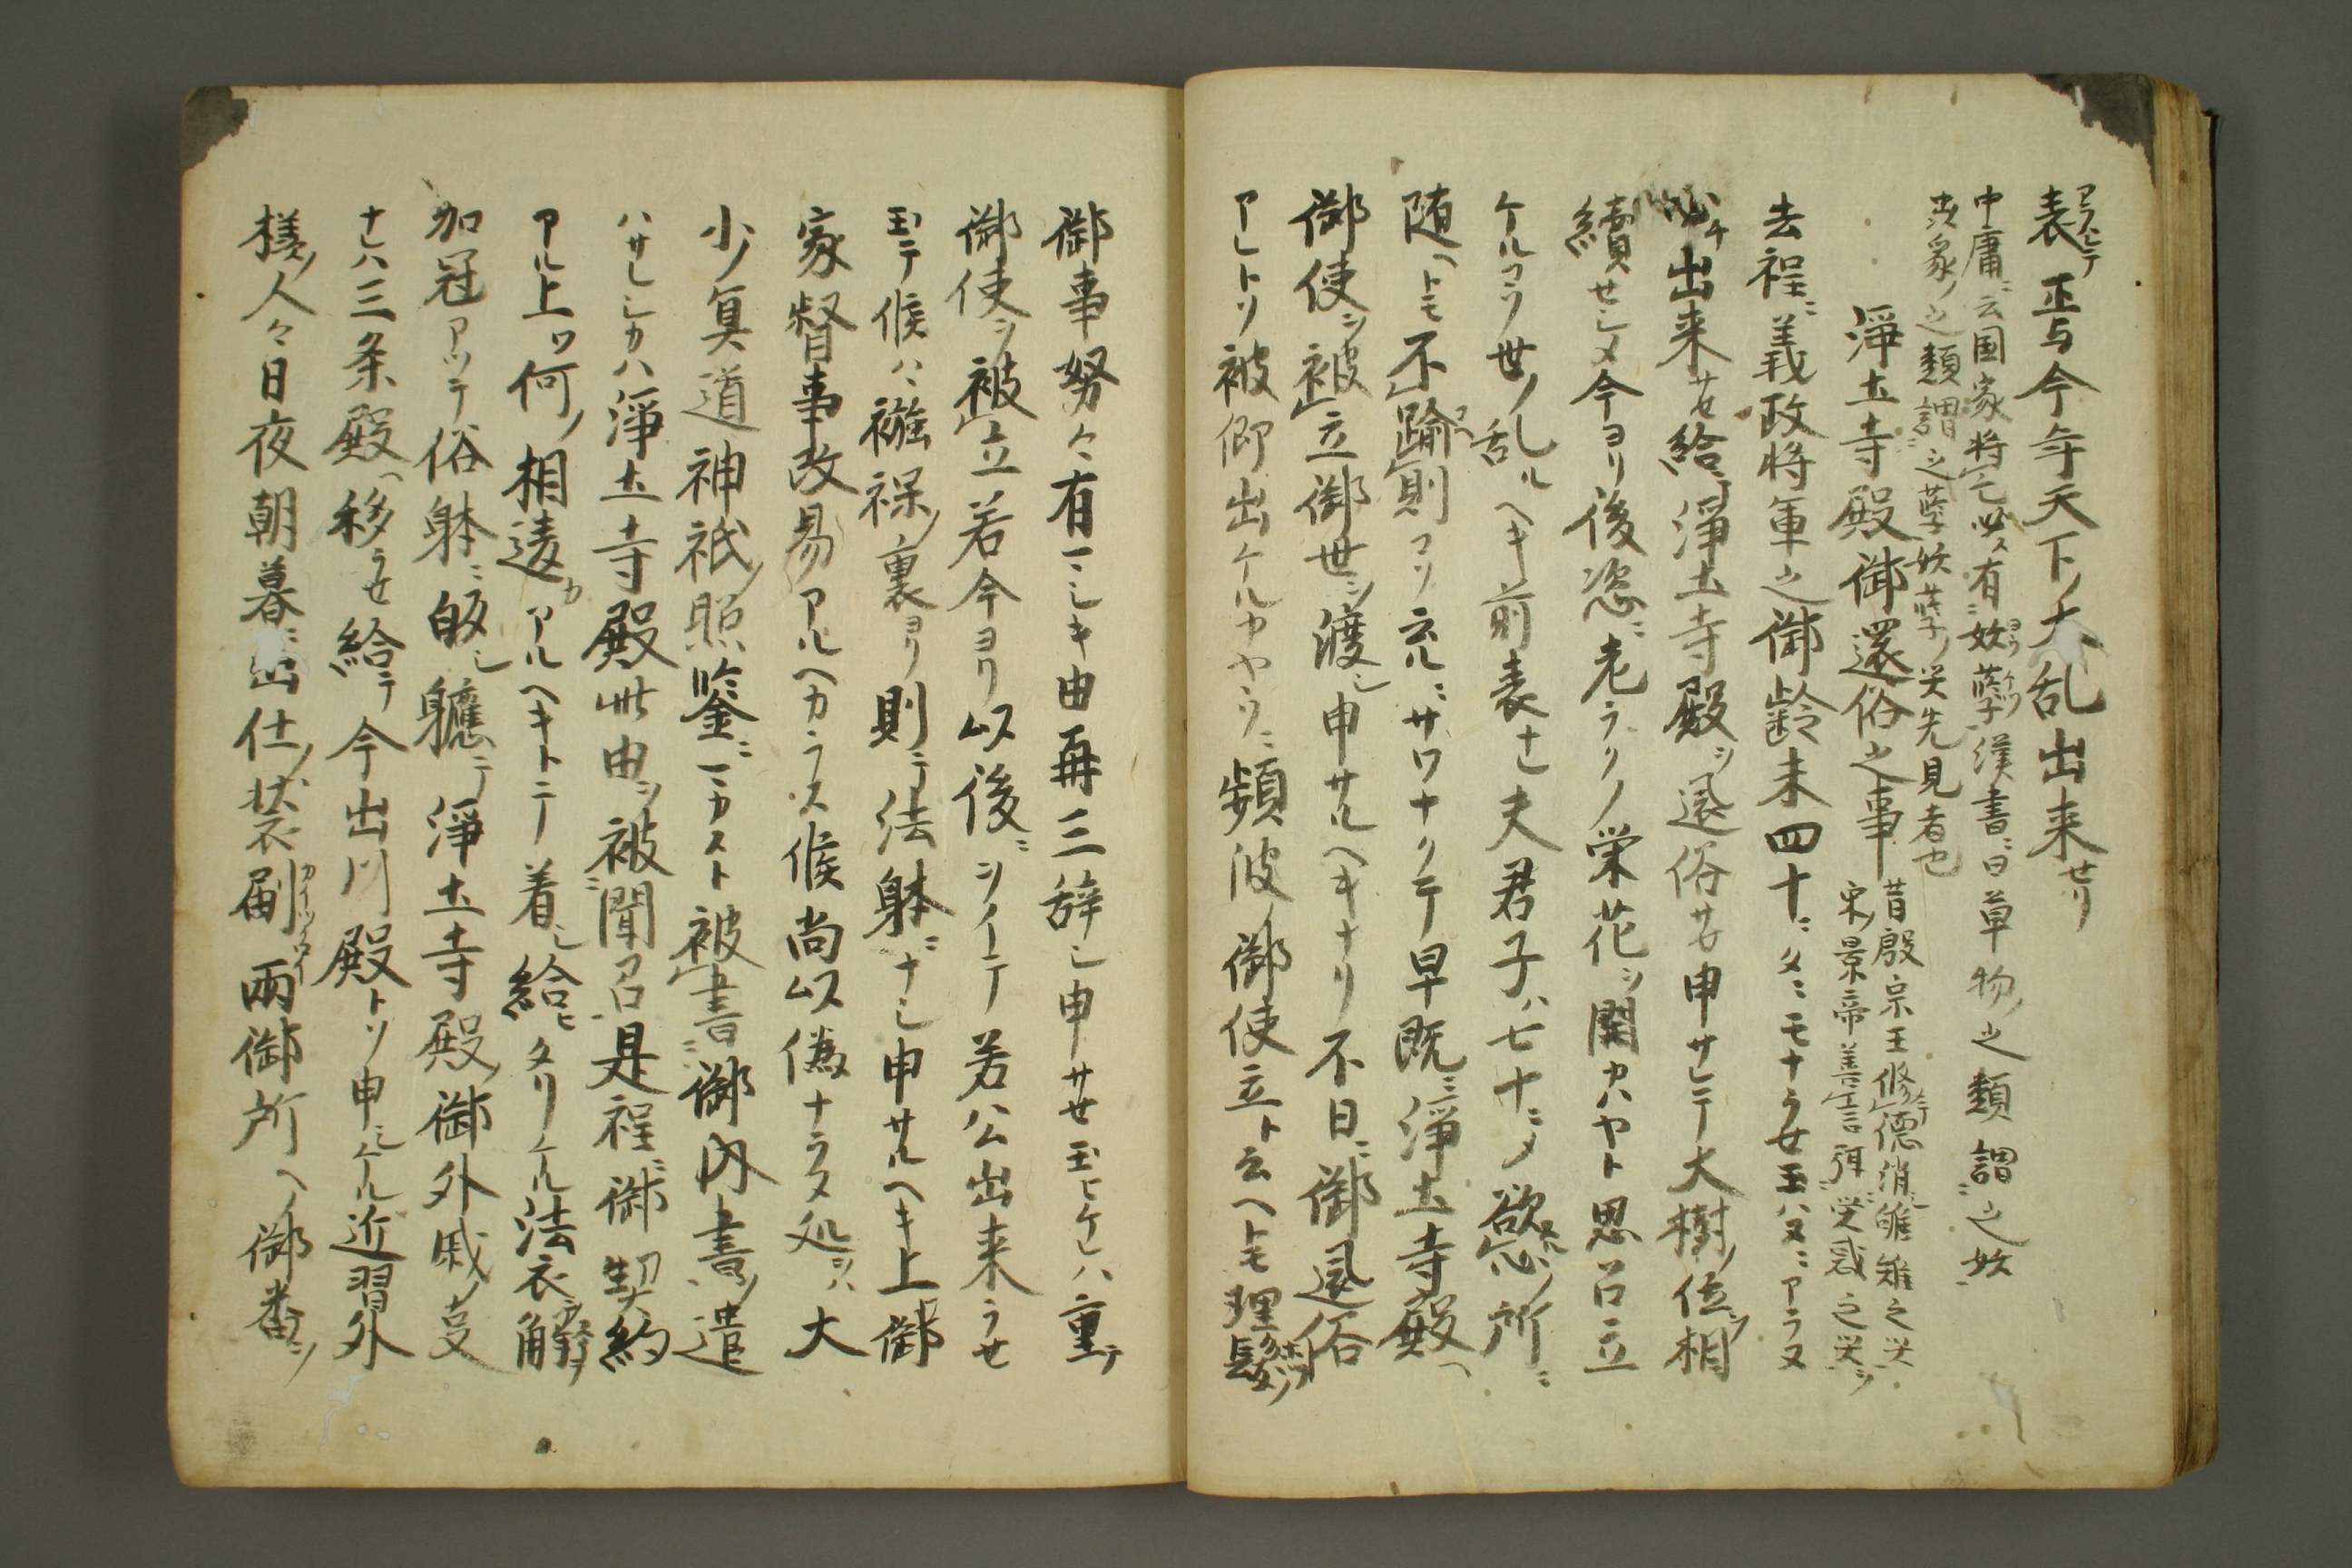 表アラハレテ正与今年天下ノ大乱出来せリ
中庸ニ云国家将亡必ス有ニ妖ヨウ孽ケツ漢書ニ曰草物ノ之類謂ニ之妖ニ
虫豸ノ之類謂ニ之孽妖孽ノ災先見者也
浄土寺殿御還俗之事
昔殷宗王修テ徳消ニ雊雉之災
宋ノ景帝善言弭ニ熒惑之災ヲ
去程ニ義政将軍之御齢未四十ニタニモナラせ玉ハヌニアラヌ
心チ出来せ給テ浄土寺殿ヲ還俗せ申サレテ大樹ノ位ヲ相
續せシメ今ヨリ後恣ニ老ラクノ栄花ヲ開カハヤト思召立
ケルコソ世ノ乱ルヘキ前表ナレ夫君子ハ七十ニメ欲心ノ所ニ
随ヘトモ不踰則コソ云ルニサワナクテ早既ニ浄土寺殿ヘ
御使ヲ被立御世ヲ渡シ申サルヘキナリ不日ニ御還俗
アレトソ被仰出ケルカヤウニ頻波ノ御使立ト云ヘトモ理髪ノ
御事努々有マシキ由再三辞シ申サせ玉ヒケレハ重テ
御使ヲ被立若今ヨリ以後ニヲイテ若公出来ラせ
玉テ候ハヽ襁褓ノ裏ヨリ則テ法躰ニナシ申サルヘキ上御
家督事改易アルヘカラス候尚以偽ナラヌ処ヲハ大
少ノ冥道神祇ノ照鑒ニマカスト被書御内書ヲ遣
ハサレシカハ浄土寺殿此由ヲ被聞召是程ニ御契約
アル上ハ何ノ相違カアルヘキトテ着シ給ヒタリケル法衣ヲ解
加冠アツテ俗躰ニ皈シ軈テ浄土寺殿ノ御外戚ノ
ナレハ三条殿ヘ移ラせ給テ今出川殿トソ申シケル近習外
様ノ人々日夜朝暮ニ出仕ノ装刷カイツクロイ両御所ヘノ御番ヲ